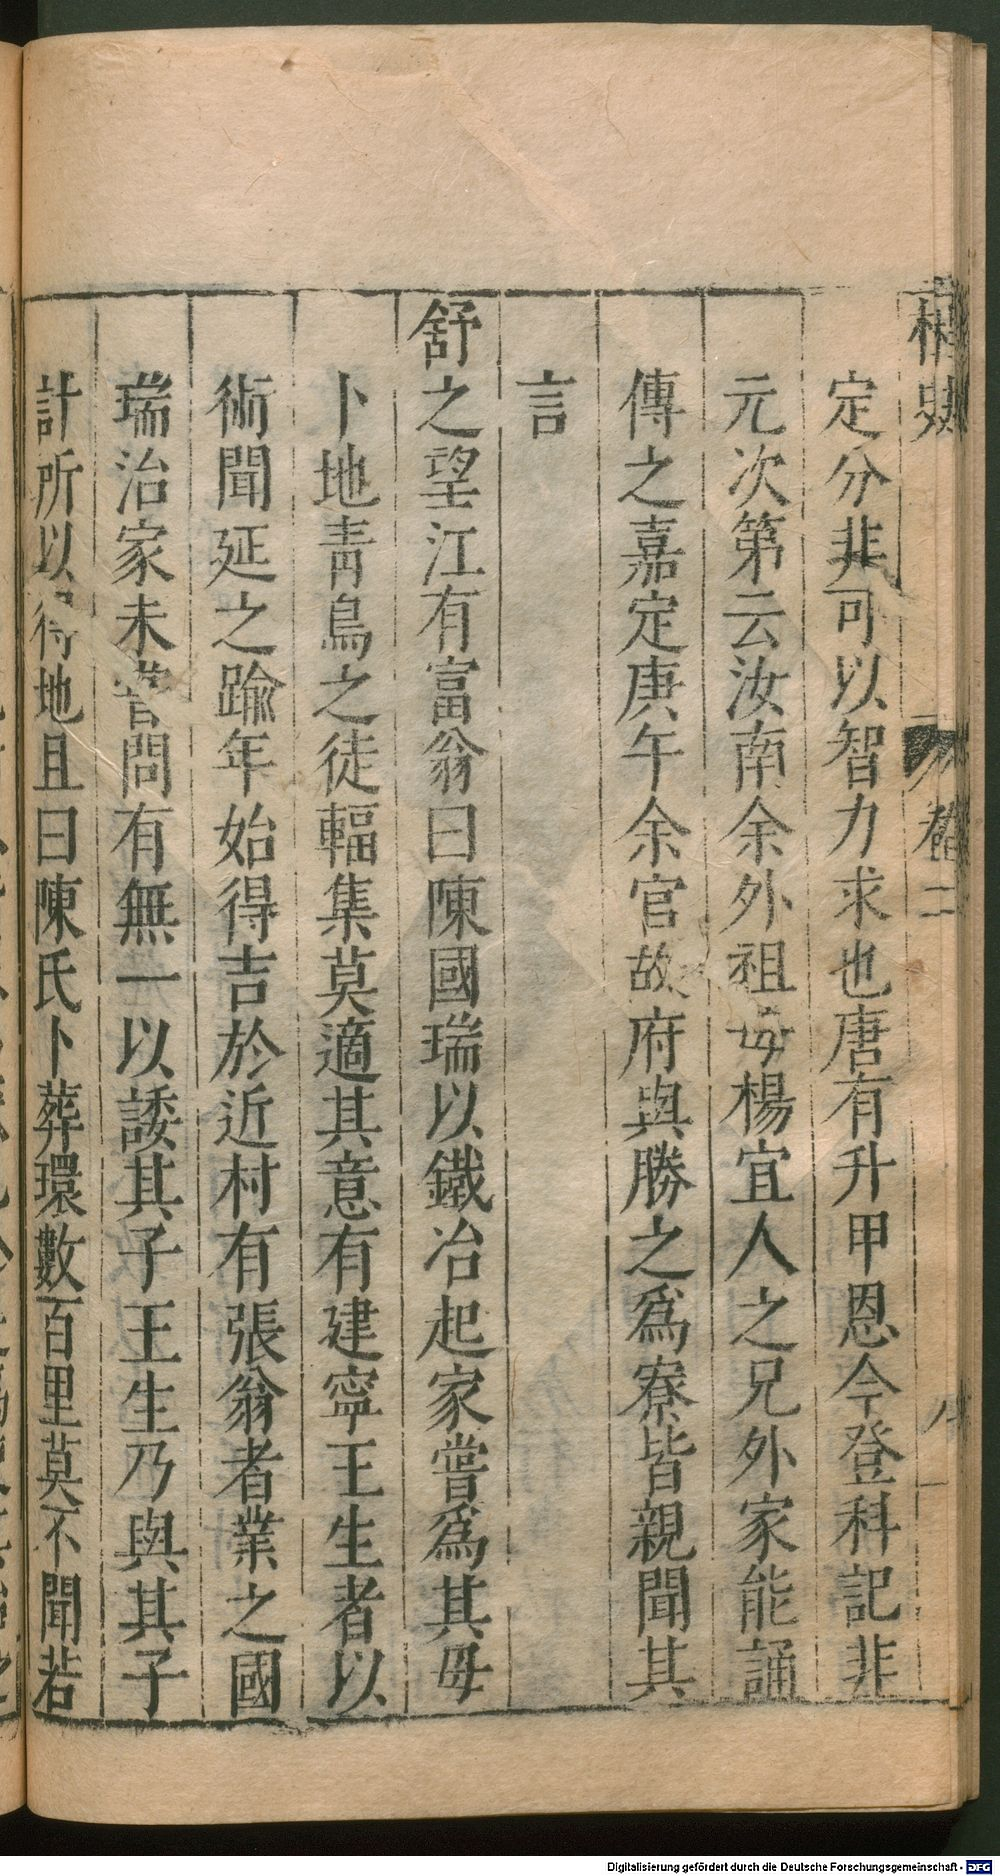 桯史 卷二 八
定分非可以智力求也唐有升甲恩今登科記非
元次第云汝南余外祖母楊宜人之兄外家能誦
傳之嘉定庚午余官故府與勝之爲寮皆親聞其
言
舒之望江有富翁曰陳國瑞以鐵冶起家嘗爲其母
卜地青烏之徒輻集莫適其意有建寧王生者以
術聞延之踰年始得吉於近村有張翁者業之國
瑞治家未嘗問有無一以諉其子王生乃與其子
計所以得地且曰陳氏卜葬環數百里莫不聞若
Digitalisierung gefördert durch die Deutsche Forschungsgemeinschaft - DFG